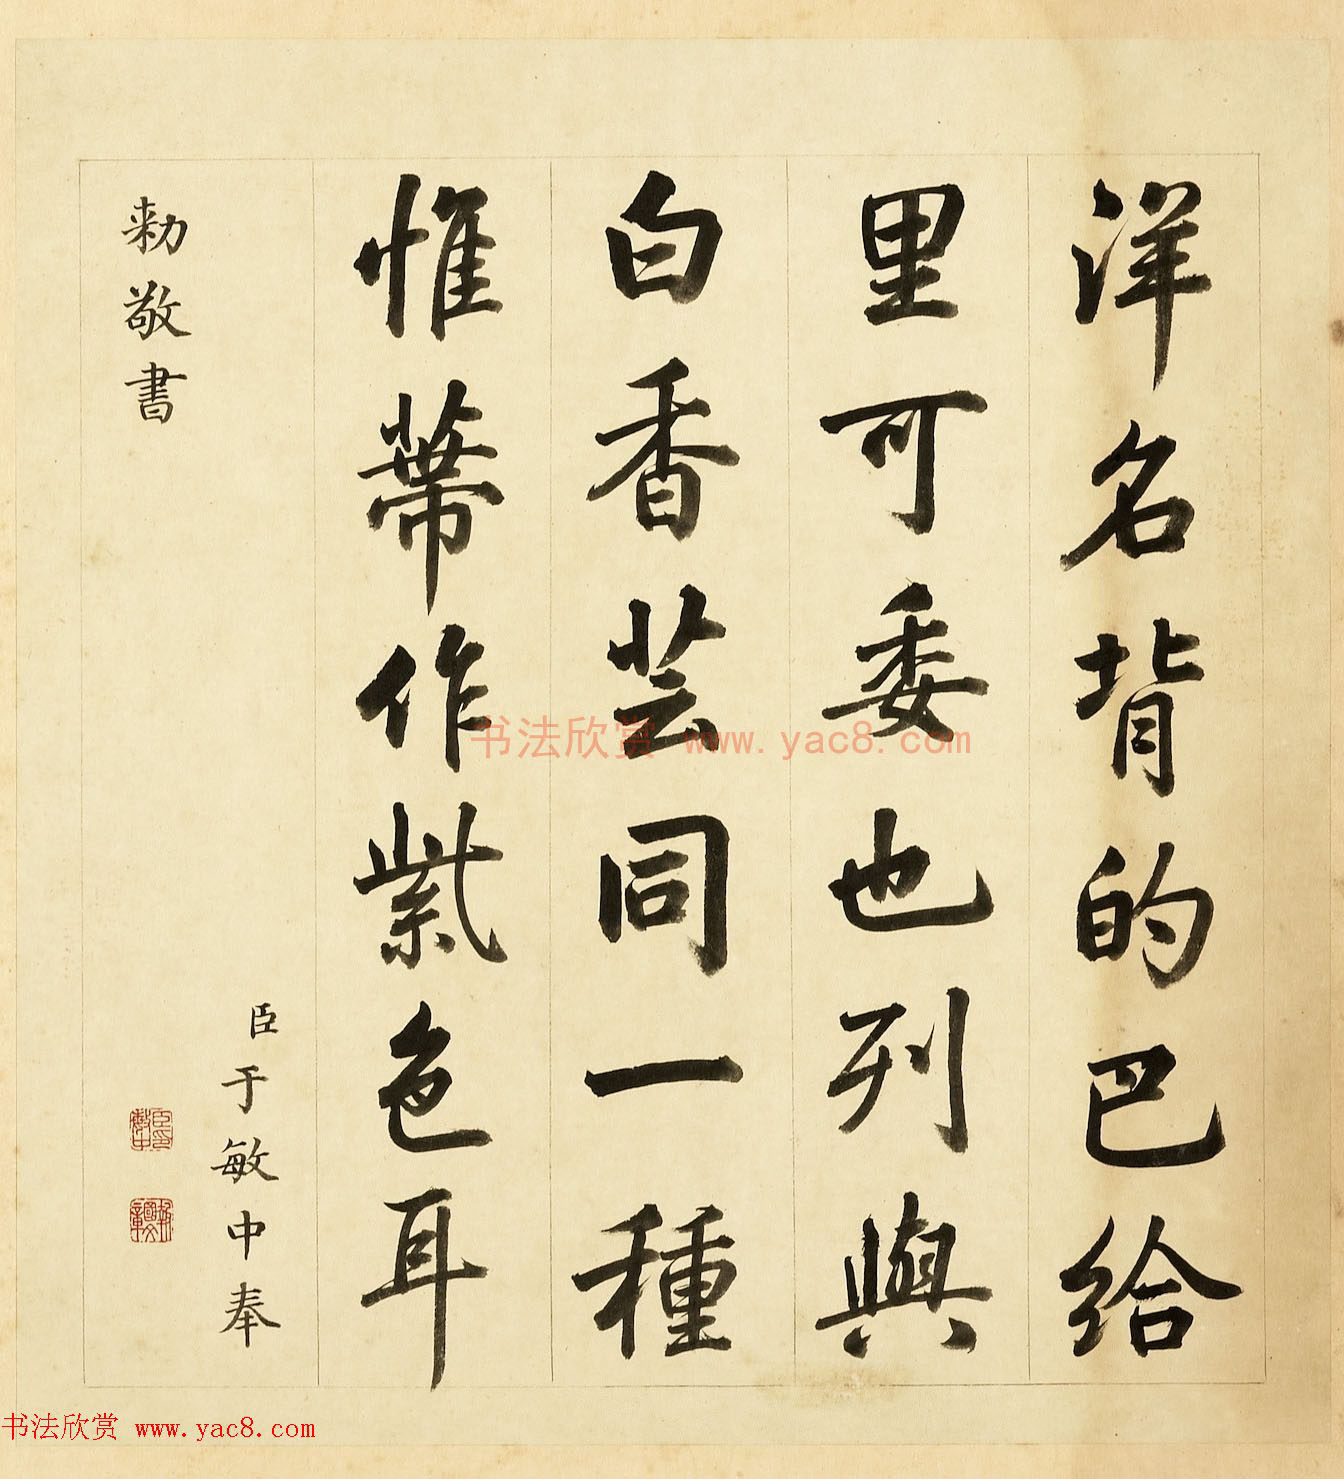 洋名背的巴给
里可委也列與
白香芸同一種
惟蔕作紫色耳
臣于敏中奉
勅敬書
书法欣赏 www.yac8.com
书法欣赏 www.yac8.com